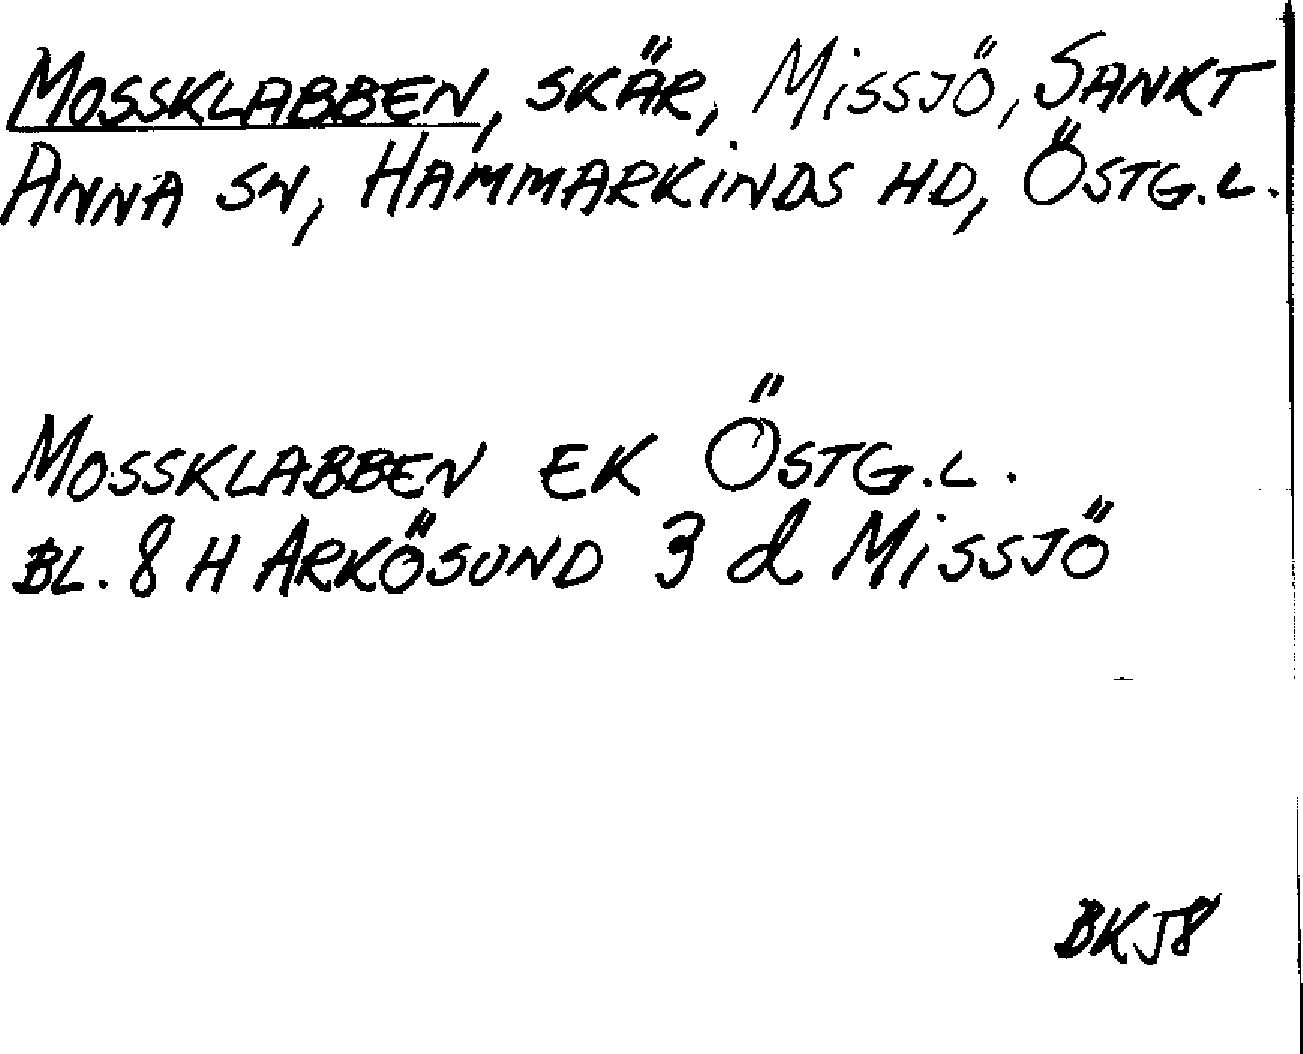 MOSSKLABBEN, SKÄR, MISSJÖ, SANKT
ANNA SN, HAMMARKINDS HD, ÖSTG.L.
MOSSKLABBEN EK ÖSTG.L.
BL. 8 H ARKÖSUND 3 d MISSJÖ
BKJ8